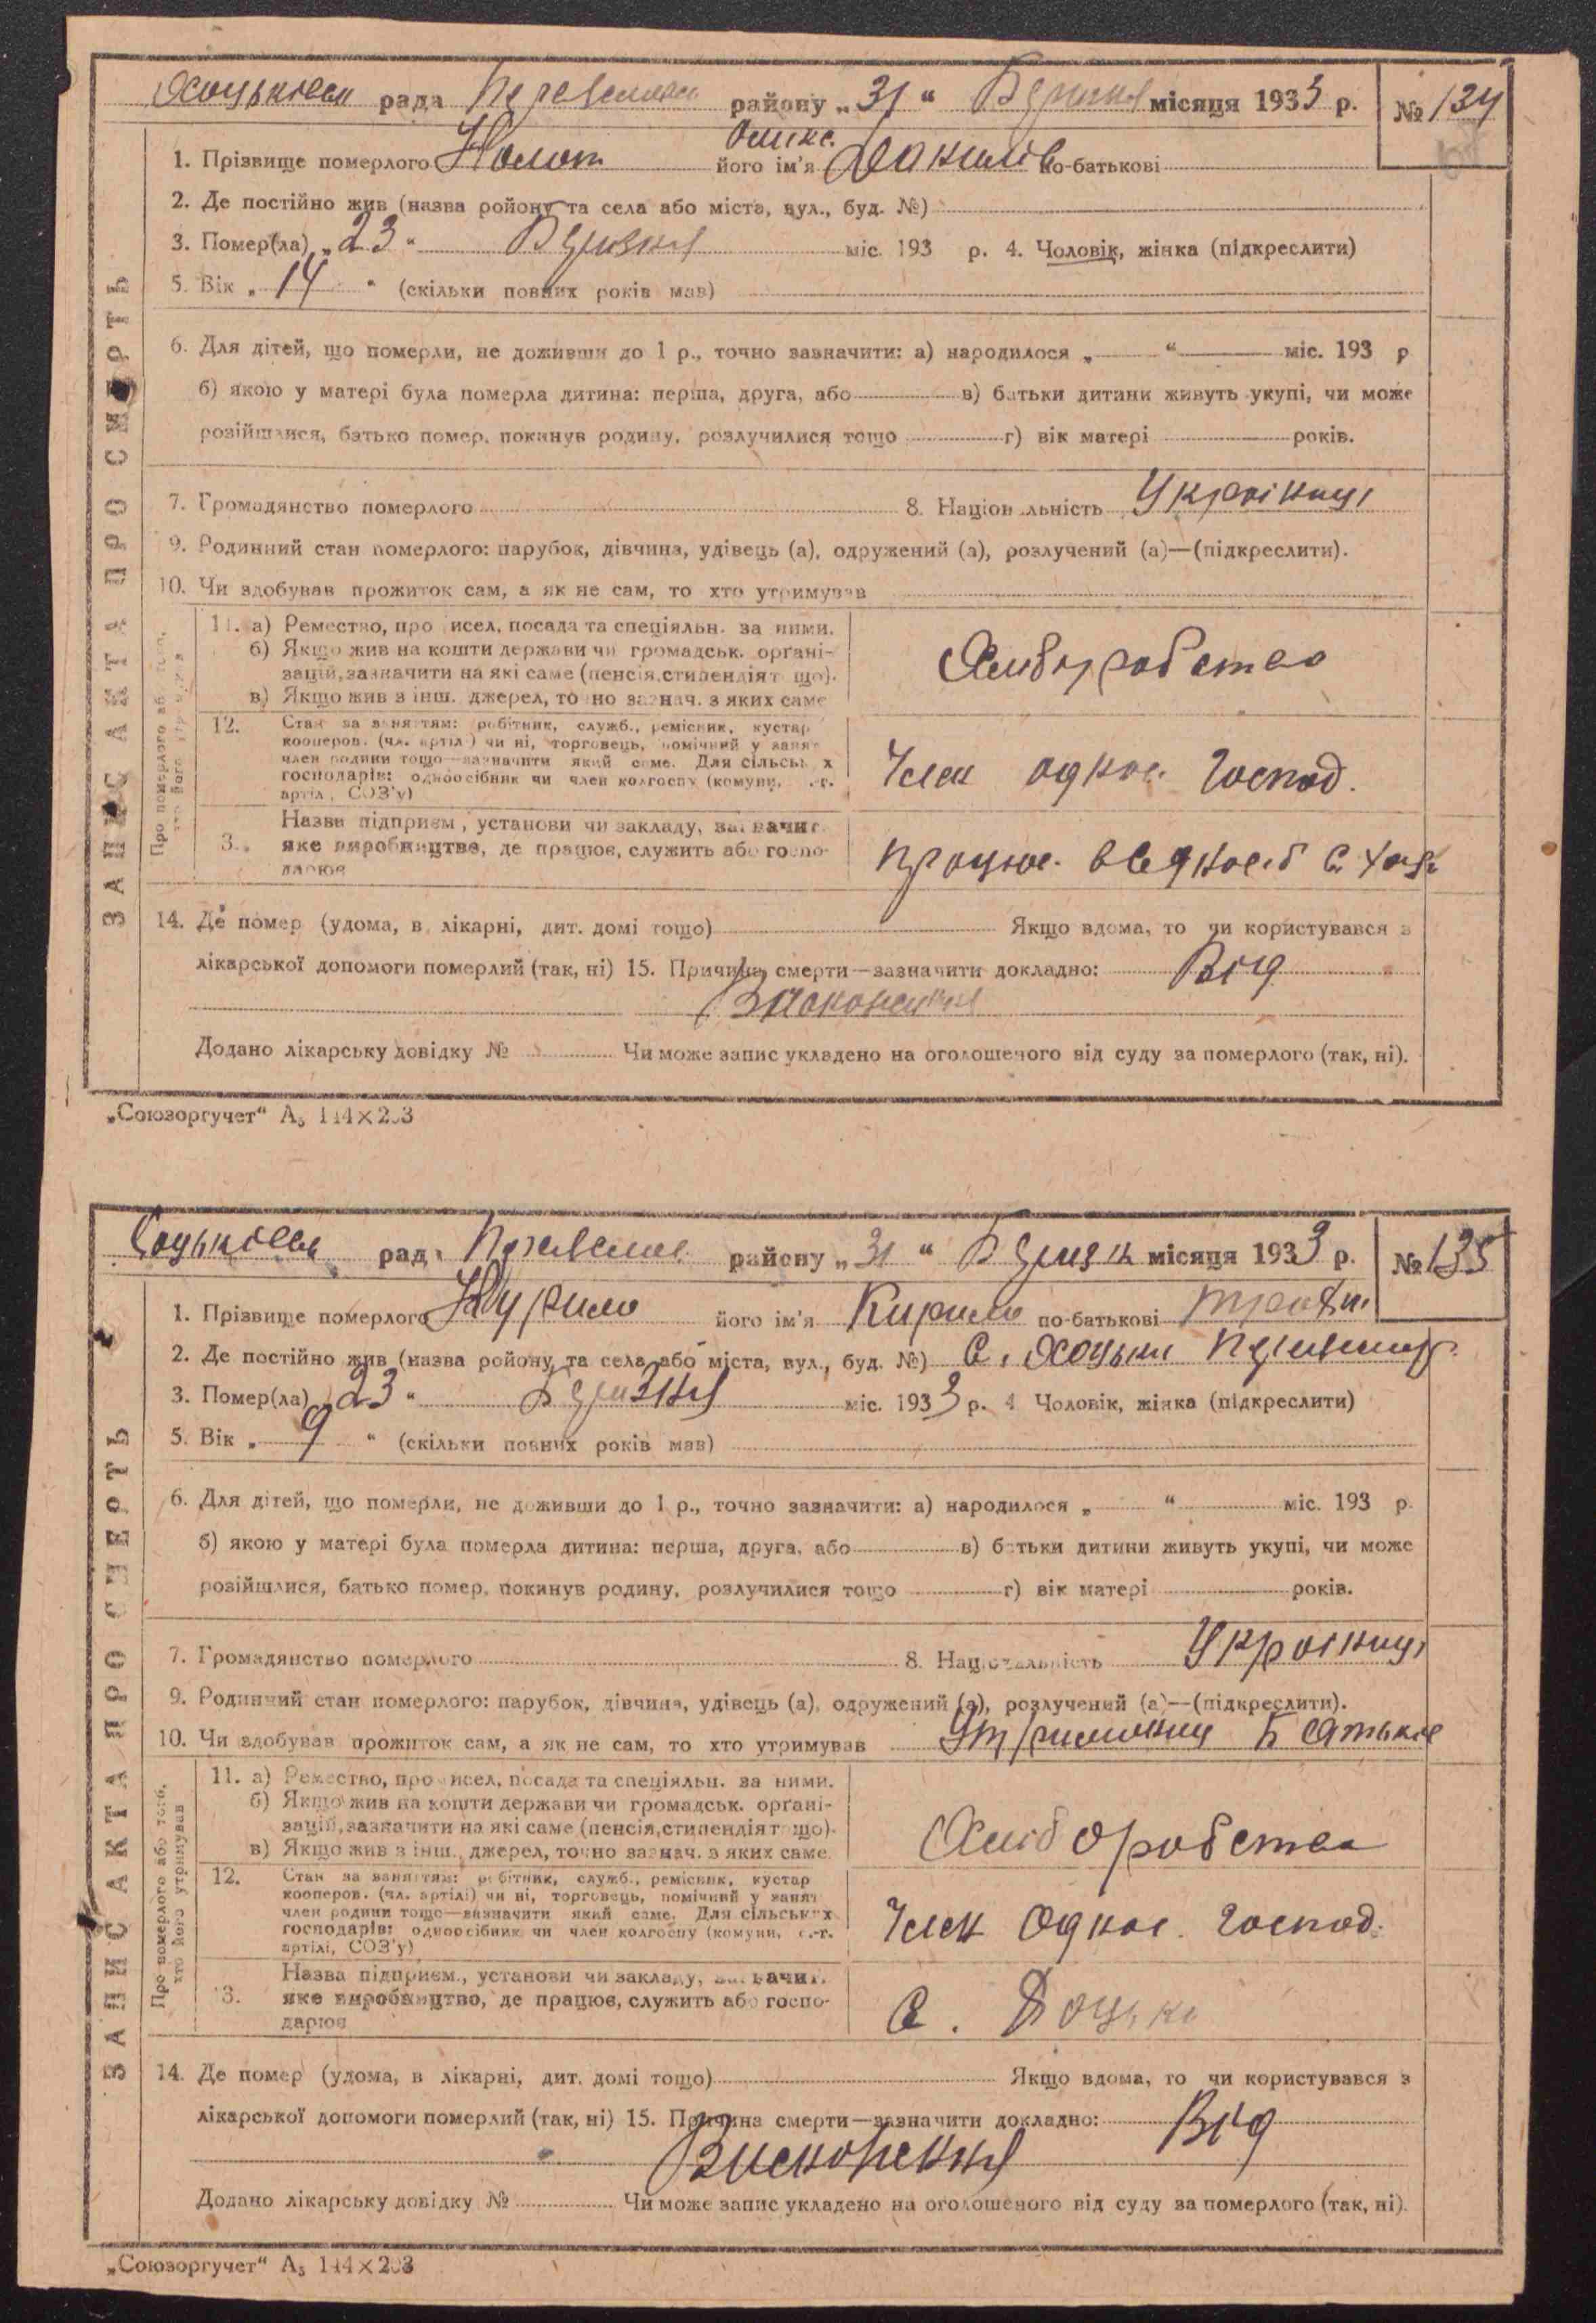 Хоцьківськ рада Переяславськ району „31“ Березня місяця 1933 р. № 134
1. Прізвище померлого його ім'я Данилів по-батькові
2. Де постійно жив (назва ройону та села або міста, вул., буд. №)
3. Помер(ла) „23“ Березня міс. 193 р. 4. Чоловік, жінка (підкреслити)
5. Вік „14“ (скільки повних років мав)
6. Для дітей, що померли, не доживши до 1 р., точно зазначити: а) народилося „ “ міс. 193 р
б) якою у матері була померла дитина: перша, друга, або в) батьки дитини живуть укупі, чи може
розійшлися, батько помер, покинув родину, розлучилися тощо г) вік матері років.
7. Громадянство померлого 8. Національність Українец
9. Родинний стан померлого: парубок, дівчина, удівець (а), одружений (а), розлучений (а)—(підкреслити).
10. Чи здобував прожиток сам, а як не сам, то хто утримував
11. а) Ремество, промисел, посада та спеціяльн. за ними.
б) Якщо жив на кошти держави чи громадськ. органі-
зацій, зазначити на які саме (пенсія, стипендія тощо).
в) Якщо жив з інш. джерел, точно зазнач. з яких саме
Хліборобство
12. Стан за заняттям: робітник, служб., ремісник, кустар
кооперов. (чл. артілі) чи ні, торговець, помічний у занят
член родини тощо—зазначити який саме. Для сільських
господарів: одноосібник чи член колгоспу (комуни, с.-г.
артіл, СОЗ'у)
Член однос. господ.
13. Назва підприєм., установи чи закладу, зазначит.
яке виробництво, де працює, служить або госпо-
дарює
14. Де помер (удома, в лікарні, дит. домі тощо) Якщо вдома, то чи користувався з
лікарської допомоги померлий (так, ні) 15. Причина смерти—зазначити докладно: Від
Виснаження
Додано лікарську довідку № Чи може запис укладено на оголошеного від суду за померлого (так, ні).
ЗАПИС АКТА ПРО СМЕРТЬ
„Союзоргучет“ А₅ 144×203
Хоцьківськ рада Переяславськ району „31“ Березня місяця 1933 р. № 135
1. Прізвище померлого Курило його ім'я Кирило по-батькові Трохим
2. Де постійно жив (назва ройону та села або міста, вул., буд. №) с. Хоцьки
3. Помер(ла) „23“ Березня міс. 1933 р. 4 Чоловік, жінка (підкреслити)
5. Вік „9“ (скільки повних років мав)
6. Для дітей, що померли, не доживши до 1 р., точно зазначити: а) народилося „ “ міс. 193 р.
б) якою у матері була померла дитина: перша, друга, або в) батьки дитини живуть укупі, чи може
розійшлися, батько помер, покинув родину, розлучилися тощо г) вік матері років.
7. Громадянство померлого 8. Національність Українец
9. Родинний стан померлого: парубок, дівчина, удівець (а), одружений (а), розлучений (а)—(підкреслити).
10. Чи здобував прожиток сам, а як не сам, то хто утримував Утриманец Батьків
11. а) Ремество, промисел, посада та спеціяльн. за ними.
б) Якщо жив на кошти держави чи громадськ. органі-
зацій, зазначити на які саме (пенсія, стипендія тощо).
в) Якщо жив з інш. джерел, точно зазнач. з яких саме.
Хліборобство
12. Стан за заняттям: робітник, служб., ремісник, кустар
кооперов. (чл. артілі) чи ні, торговець, помічний у занят
член родини тощо—зазначити який саме. Для сільських
господарів: одноосібник чи член колгоспу (комуни, с.-г.
артілі, СОЗ'у)
Член однос. господ.
13. Назва підприєм., установи чи закладу, зазначит.
яке виробництво, де працює, служить або госпо-
дарює
с. Хоцьки
Про померлого або того,
хто його утримував
14. Де помер (удома, в лікарні, дит. домі тощо) Якщо вдома, то чи користувався з
лікарської допомоги померлий (так, ні) 15. Причина смерти—зазначити докладно: Від
Виснаження
Додано лікарську довідку № Чи може запис укладено на оголошеного від суду за померлого (так, ні).
ЗАПИС АКТА ПРО СМЕРТЬ
„Союзоргучет“ А₅ 144×203